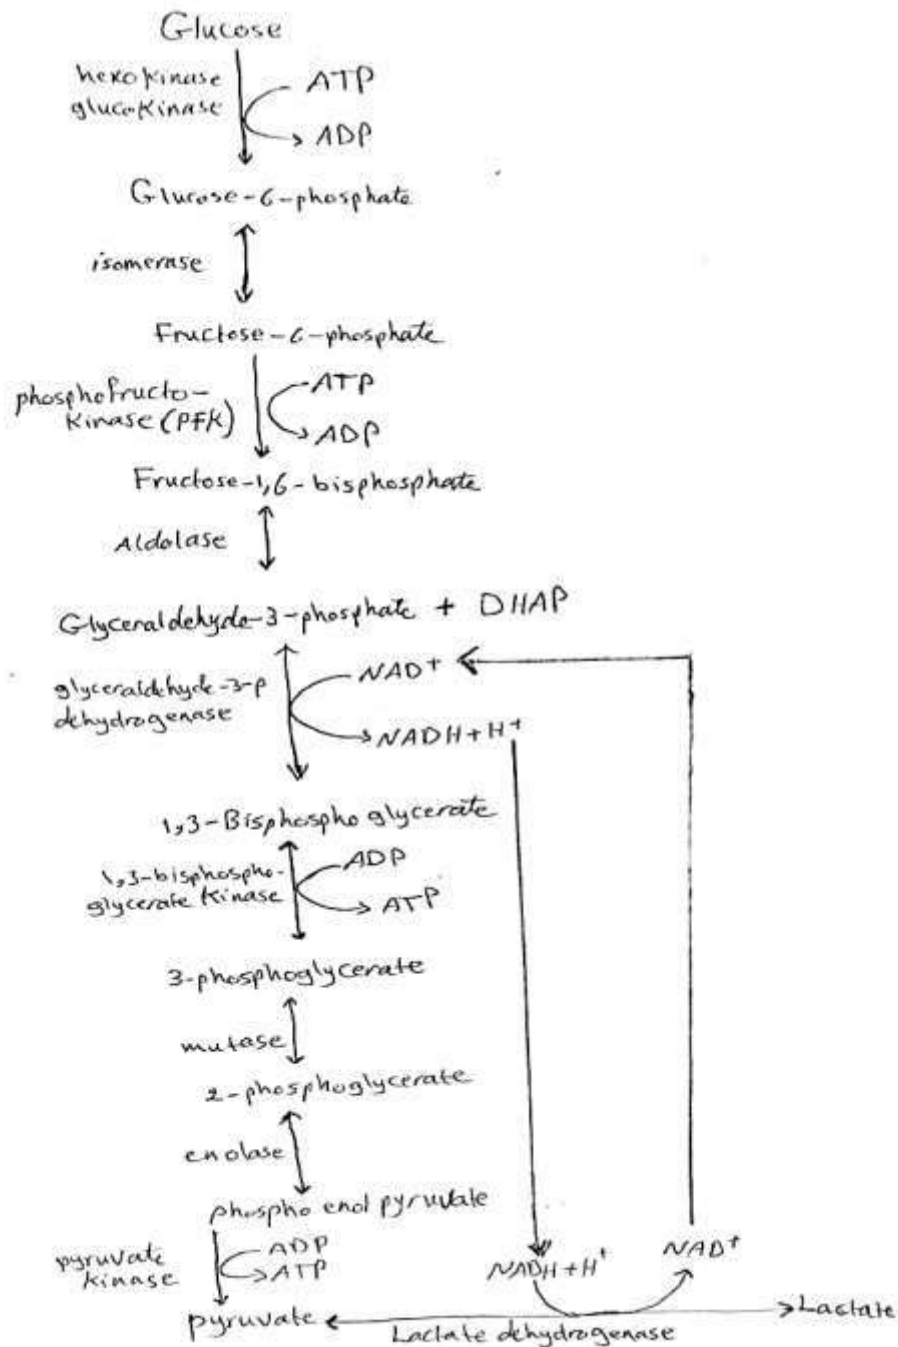 Glucose
hexokinase
glucokinase
ATP
ADP
Glucose-6-phosphate
isomerase
Fructose-6-phosphate
phosphofructo-
kinase (PFK)
ATP
ADP
Fructose-1,6-bisphosphate
Aldolase
Glyceraldehyde-3-phosphate + DHAP
glyceraldehyde-3-p
dehydrogenase
NAD+
NADH+H+
1,3-Bisphospho glycerate
1,3-bisphospho-
glycerate kinase
ADP
ATP
3-phosphoglycerate
mutase
2-phosphoglycerate
enolase
phospho enol pyruvate
pyruvate
kinase
ADP
ATP
NADH+H+
NAD+
pyruvate
Lactate dehydrogenase
Lactate